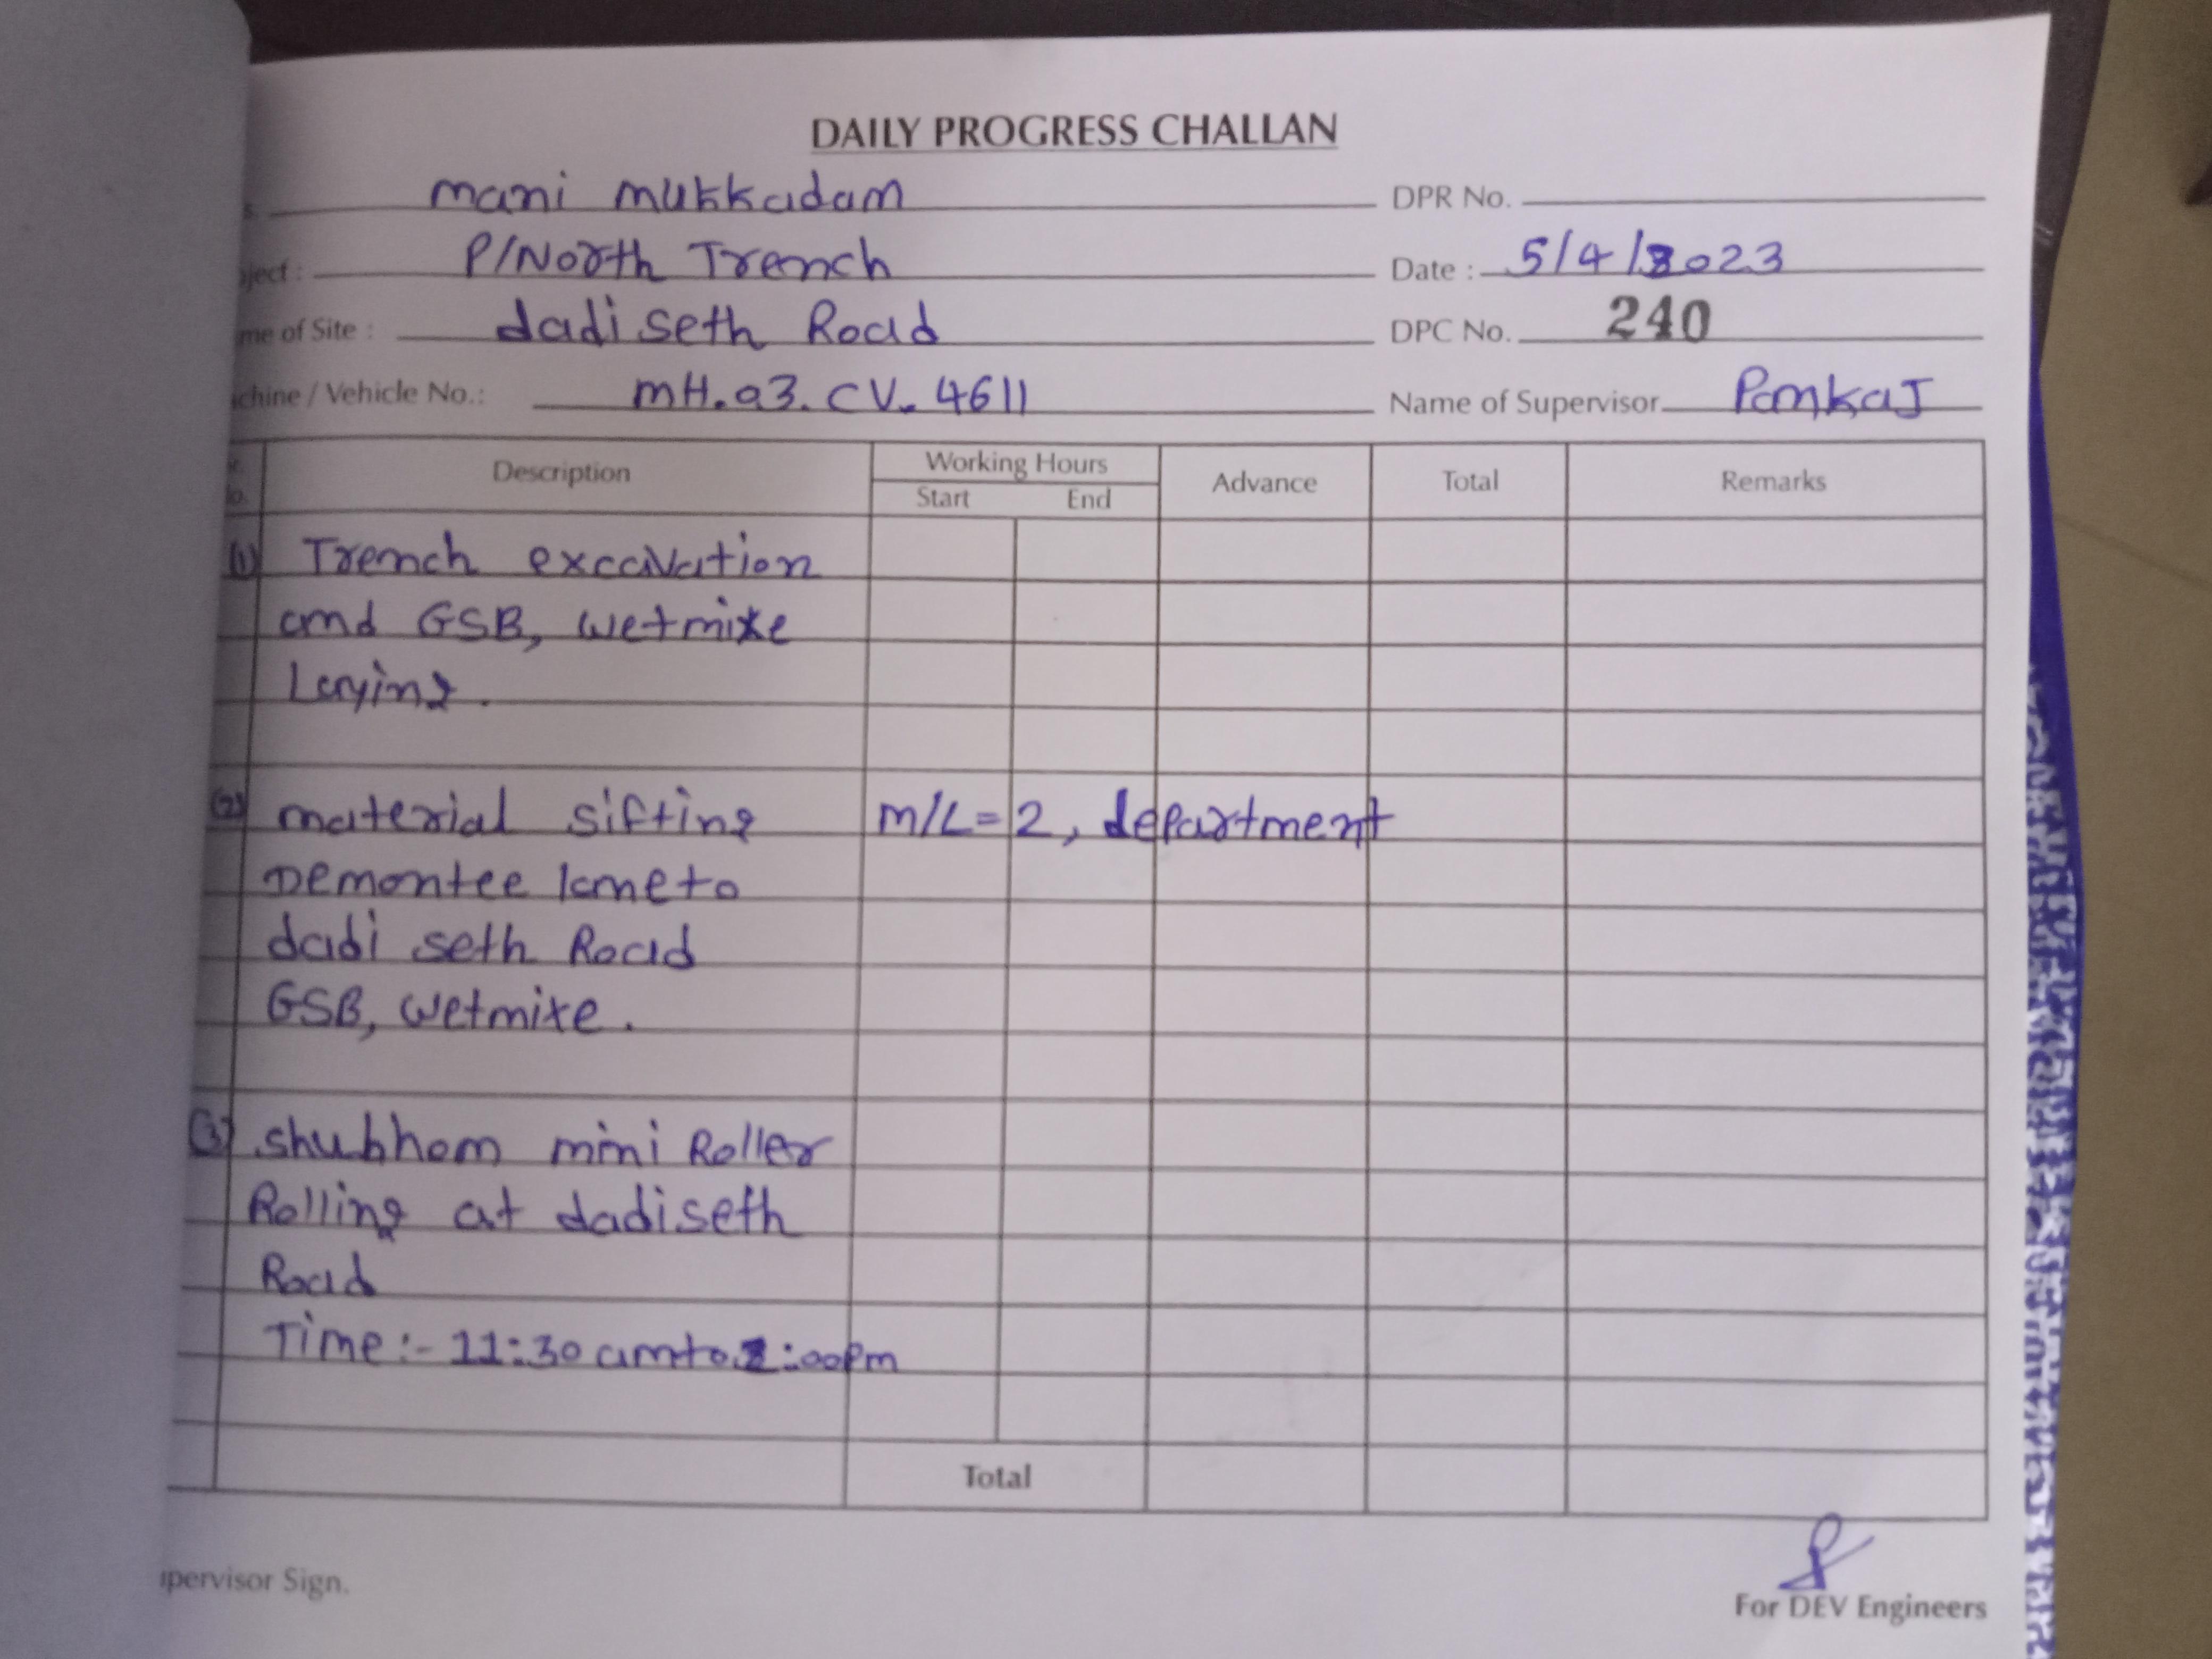 DAILY PROGRESS CHALLAN
s. mani mukkadam DPR No.
ject : P/North Trench Date : 5/4/2023
me of Site : dadi seth Road DPC No. 240
chine / Vehicle No.: mH.03.CV.4611 Name of Supervisor Pankaj
Description Working Hours Advance Total Remarks
Start End
(1) Trench excavation
and GSB, wetmixe
Laying.
(2) material sifting m/L=2, department
Demontee lane to
dadi seth Road
GSB, wetmixe.
(3) shubham mini Roller
Rolling at dadi seth
Road
Time:- 11:30 am to :00pm
Total
pervisor Sign.
For DEV Engineers